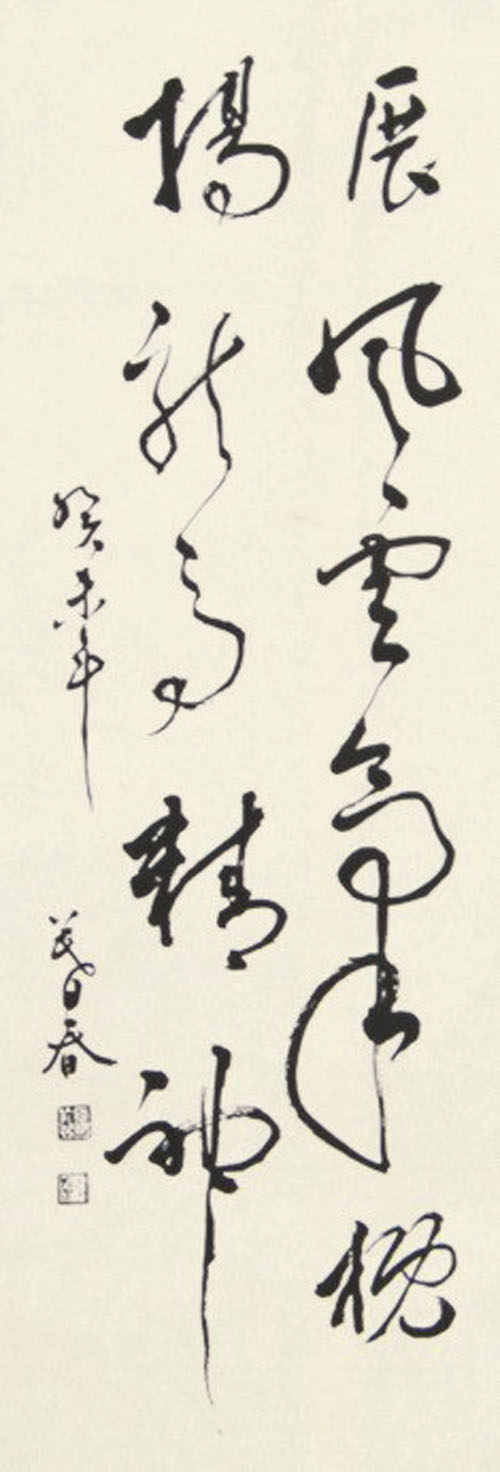 展風雲氣概
揚龍馬精神
癸未年